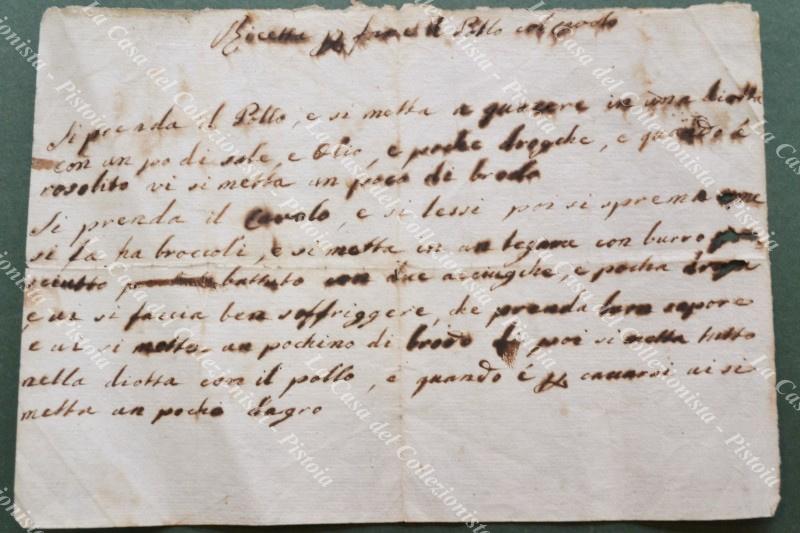 Ricetta p fare il Pollo col cavolo
Si prenda il Pollo, e si metta a quocere in una diotta
con un po di sale, e Olio, e poche drogche, e quando é
rosolito vi si metta un poco di brodo
Si prenda il Cavolo, e si lessi poi si sprema come
si fa ha broccoli, e si metta in un tegame con burro
sciutto battuto con due acciugche, e pocha droga
e vi si faccia ben soffriggere, che prenda bon sapore
e vi si metta un pochino di brodo poi si metta tutto
nella diotta con il pollo, e quando é p cavarsi vi si
metta un pocho d'agro
La Casa del Collezionista - Pistoia